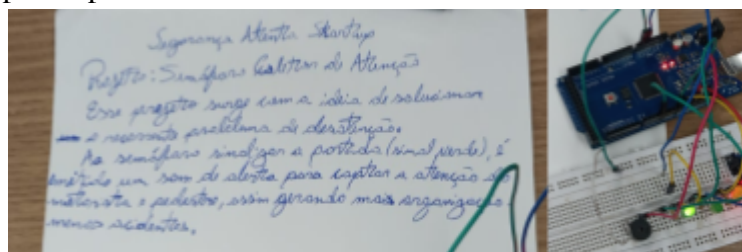 Segurança Atenta Startups
Projeto: Semáforo Coletor de Atenção
Esse projeto surge com a ideia de solucionar
o recorrente problema de desatenção.
Ao semáforo sinalizar a partida (sinal verde), é
emitido um som de alerta para captar a atenção do
motorista e pedestre, assim gerando mais organização
menos acidentes.